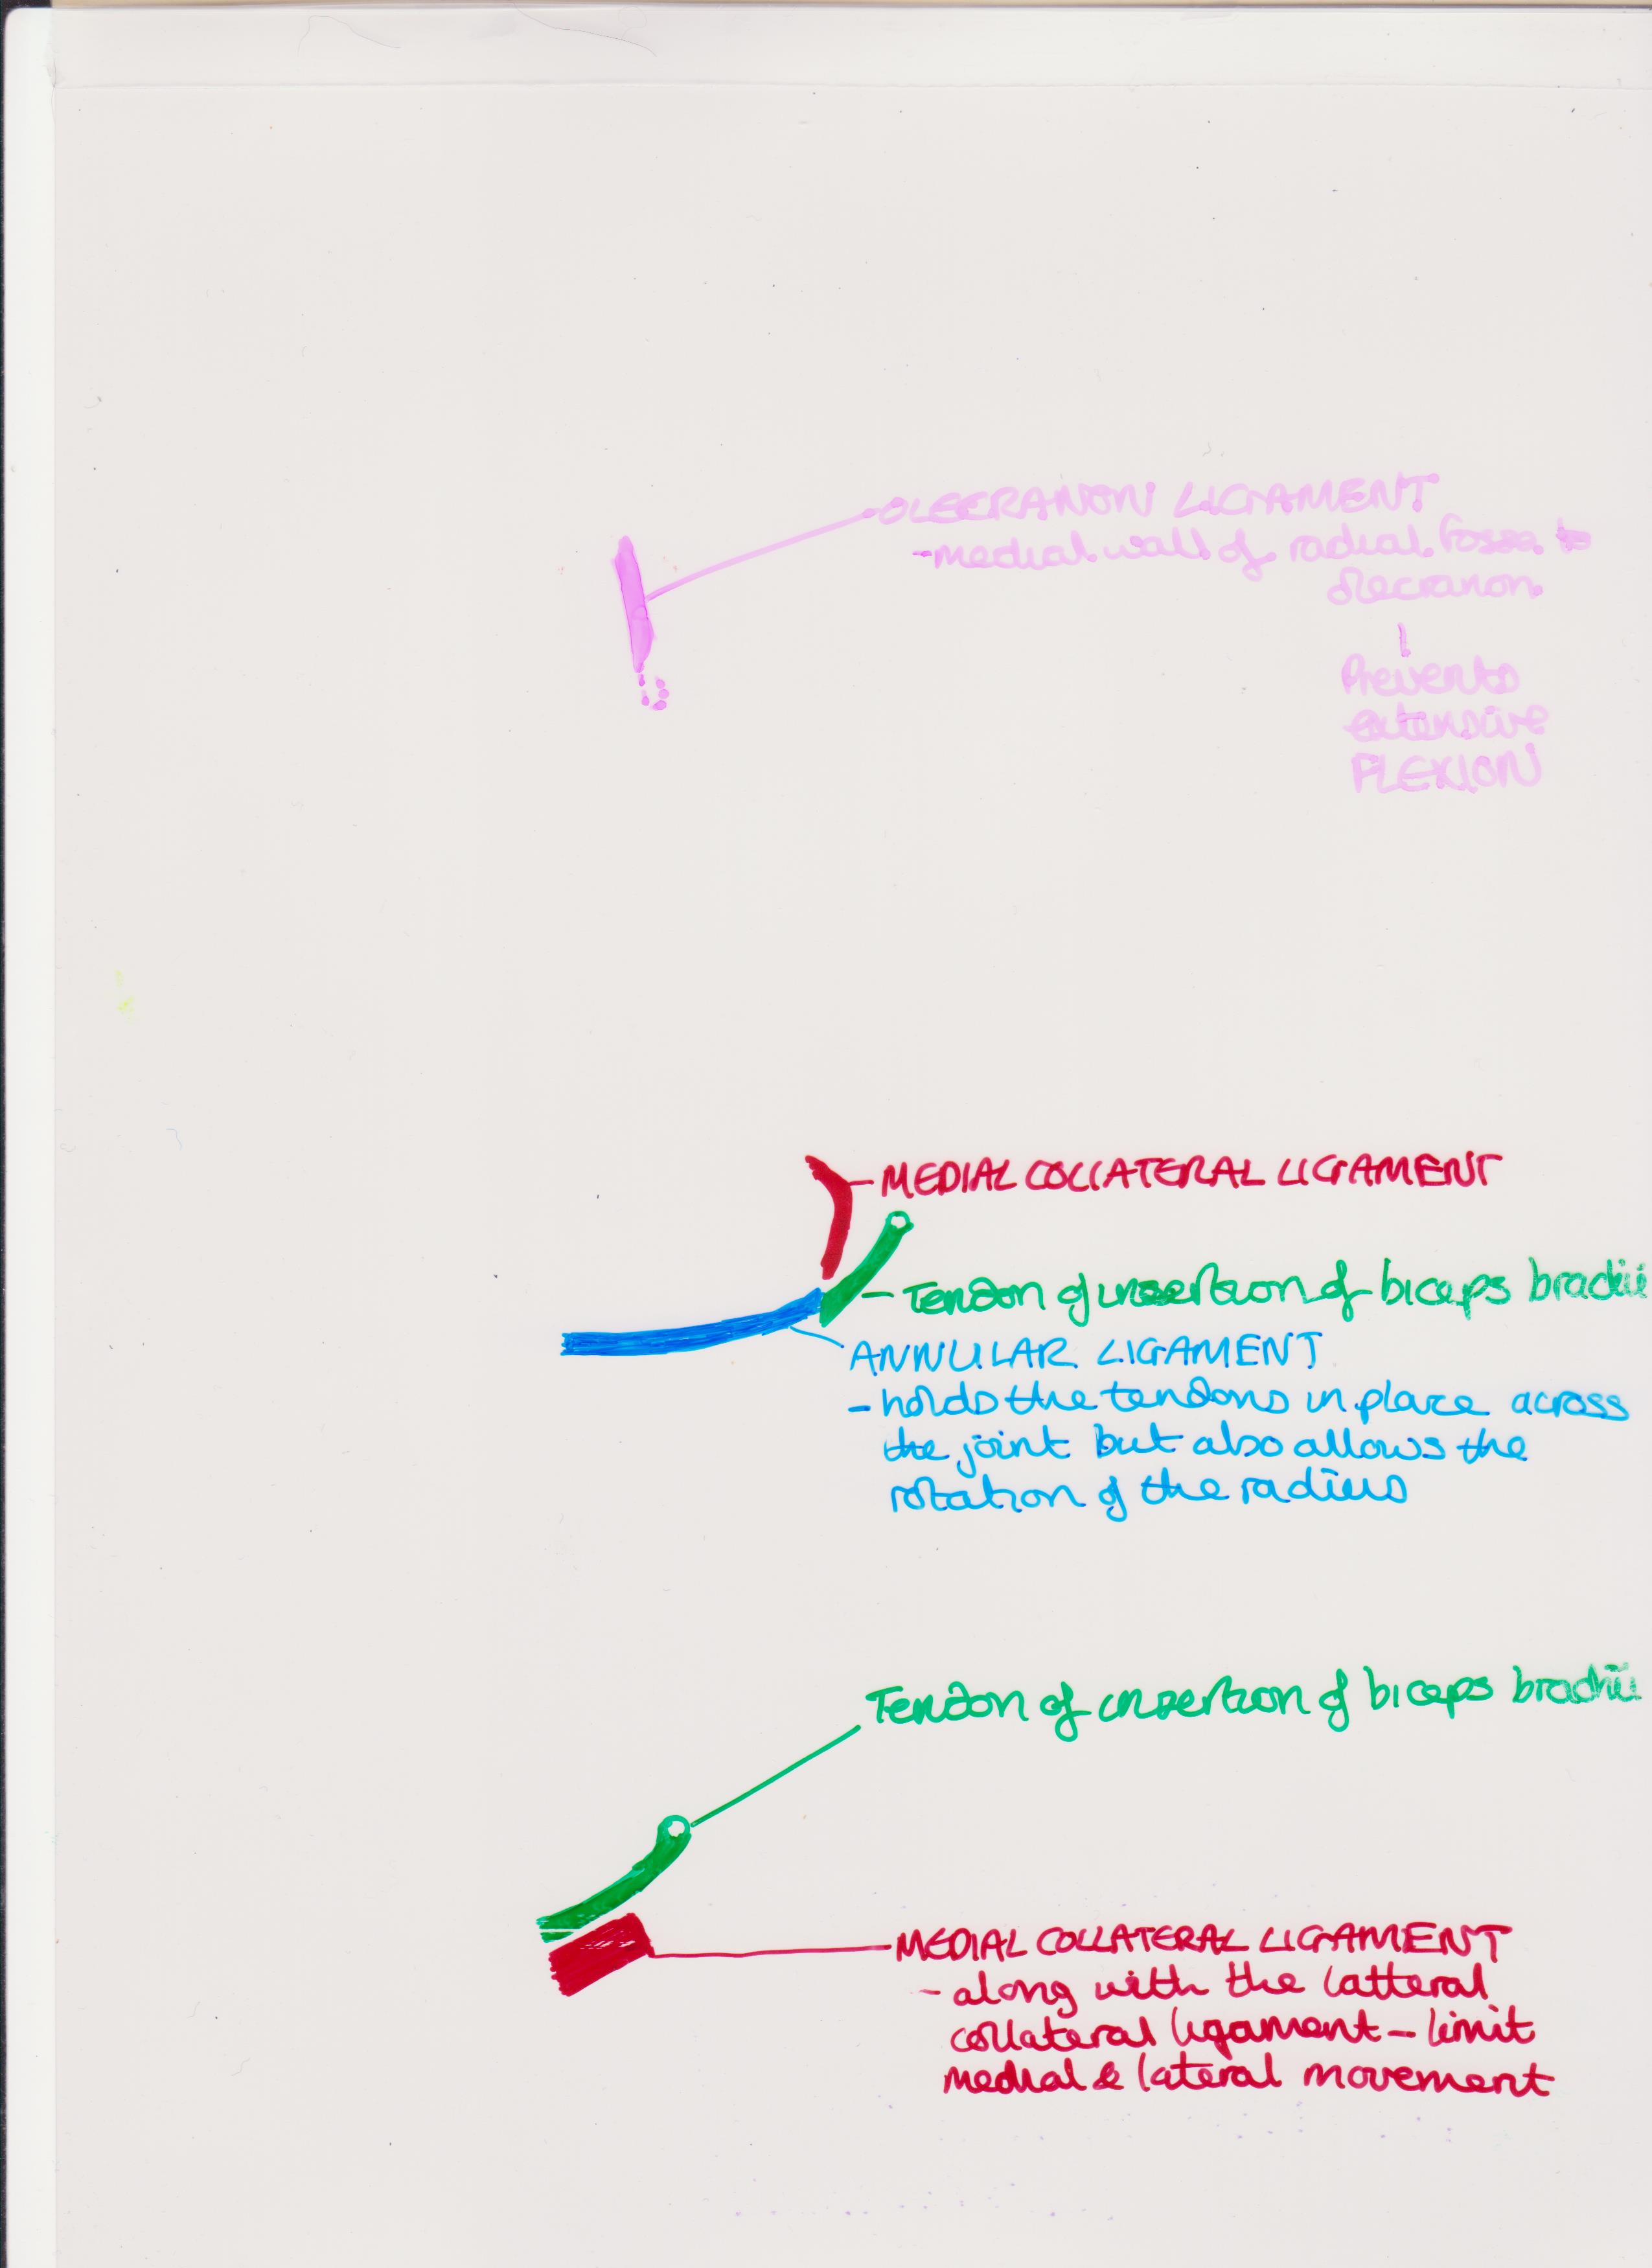 OLECRANON LIGAMENT
-medial wall of radial fossa to
olecranon
Prevents
extensive
FLEXION
MEDIAL COLLATERAL LIGAMENT
- Tendon of insertion of biceps brachii
ANNULAR LIGAMENT
- holds the tendons in place across
the joint but also allows the
rotation of the radius
Tendon of insertion of biceps brachii
MEDIAL COLLATERAL LIGAMENT
- along with the latteral
collateral ligament - limit
medial & lateral movement